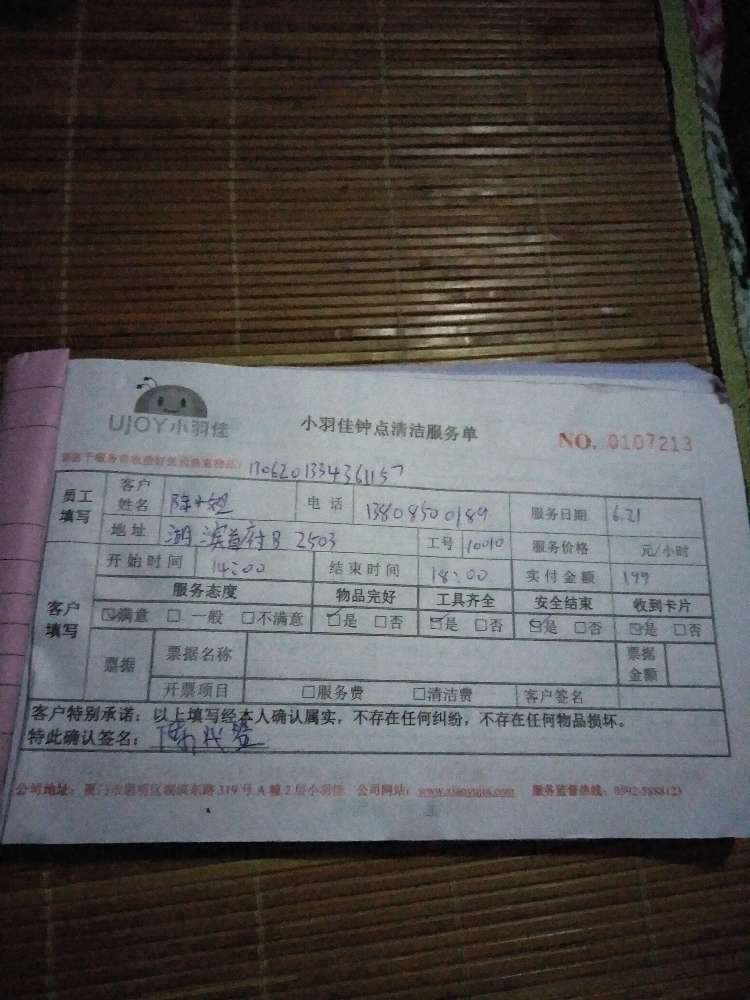 UJOY小羽佳
小羽佳钟点清洁服务单
NO. 0107213
1706201334361157
员工填写 客户姓名 陈小姐 电话 13808500189 服务日期 6.21
地址 湖滨首府B 2503 工号 10010 服务价格 元/小时
客户填写 开始时间 14:00 结束时间 18:00 实付金额 199
服务态度 物品完好 工具齐全 安全结束 收到卡片
☑满意 □一般 □不满意 ☑是 □否 ☑是 □否 ☑是 □否 ☑是 □否
票据 票据名称 票据金额
开票项目 □服务费 □清洁费 客户签名
客户特别承诺：以上填写经本人确认属实，不存在任何纠纷，不存在任何物品损坏。
特此确认签名：陈 代签
公司地址：厦门市思明区 东路319号A幢2层小羽佳 公司网站：www.xiaoyujia.com 服务监督热线：0592-5888123